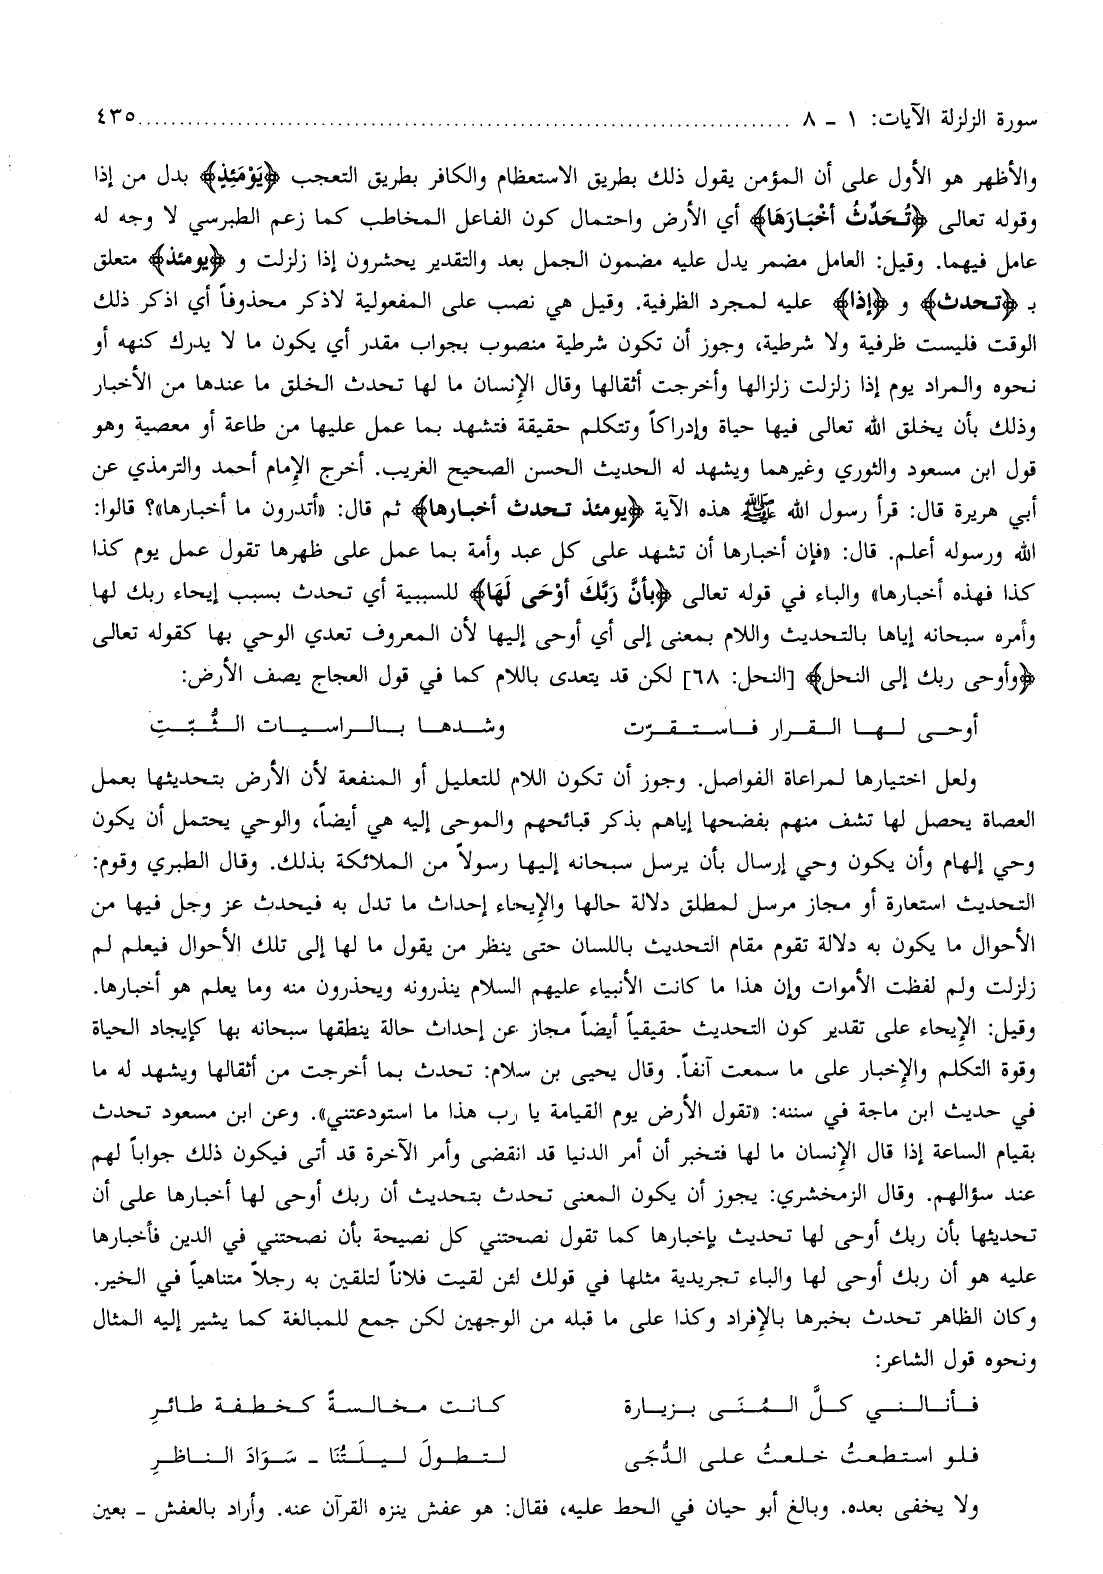 سورة الزلزلة الآيات: ١ ـ ٨ ............................................................ ٤٣٥
والأظهر هو الأول على أن المؤمن يقول ذلك بطريق الاستعظام والكافر بطريق التعجب ﴿يَوْمَئِذٍ﴾ بدل من إذا
وقوله تعالى ﴿تُحَدِّثُ أخْبَارَهَا﴾ أي الأرض واحتمال كون الفاعل المخاطب كما زعم الطبرسي لا وجه له
عامل فيهما. وقيل: العامل مضمر يدل عليه مضمون الجمل بعد والتقدير يحشرون إذا زلزلت و ﴿يومئذ﴾ متعلق
بـ ﴿تحدث﴾ و ﴿إذا﴾ عليه لمجرد الظرفية. وقيل هي نصب على المفعولية لاذكر محذوفاً أي اذكر ذلك
الوقت فليست ظرفية ولا شرطية، وجوز أن تكون شرطية منصوب بجواب مقدر أي يكون ما لا يدرك كنهه أو
نحوه والمراد يوم إذا زلزلت زلزالها وأخرجت أثقالها وقال الإنسان ما لها تحدث الخلق ما عندها من الأخبار
وذلك بأن يخلق الله تعالى فيها حياة وإدراكاً وتتكلم حقيقة فتشهد بما عمل عليها من طاعة أو معصية وهو
قول ابن مسعود والثوري وغيرهما ويشهد له الحديث الحسن الصحيح الغريب. أخرج الإمام أحمد والترمذي عن
أبي هريرة قال: قرأ رسول الله ﷺ هذه الآية ﴿يومئذ تحدث أخبارها﴾ ثم قال: «أتدرون ما أخبارها»؟ قالوا:
الله ورسوله أعلم. قال: «فإن أخبارها أن تشهد على كل عبد وأمة بما عمل على ظهرها تقول عمل يوم كذا
كذا فهذه أخبارها» والباء في قوله تعالى ﴿بأنَّ رَبَّكَ أوْحَى لَهَا﴾ للسببية أي تحدث بسبب إيحاء ربك لها
وأمره سبحانه إياها بالتحديث واللام بمعنى إلى أي أوحى إليها لأن المعروف تعدي الوحي بها كقوله تعالى
﴿وأوحى ربك إلى النحل﴾ [النحل: ٦٨] لكن قد يتعدى باللام كما في قول العجاج يصف الأرض:
أوحى لها القرار فاستقرت وشدها بالراسيات الثُّبّتِ
ولعل اختيارها لمراعاة الفواصل. وجوز أن تكون اللام للتعليل أو المنفعة لأن الأرض بتحديثها بعمل
العصاة يحصل لها تشف منهم بفضحها إياهم بذكر قبائحهم والموحى إليه هي أيضاً، والوحي يحتمل أن يكون
وحي إلهام وأن يكون وحي إرسال بأن يرسل سبحانه إليها رسولاً من الملائكة بذلك. وقال الطبري وقوم:
التحديث استعارة أو مجاز مرسل لمطلق دلالة حالها والإيحاء إحداث ما تدل به فيحدث عز وجل فيها من
الأحوال ما يكون به دلالة تقوم مقام التحديث باللسان حتى ينظر من يقول ما لها إلى تلك الأحوال فيعلم لم
زلزلت ولم لفظت الأموات وإن هذا ما كانت الأنبياء عليهم السلام ينذرونه ويحذرون منه وما يعلم هو أخبارها.
وقيل: الإيحاء على تقدير كون التحديث حقيقياً أيضاً مجاز عن إحداث حالة ينطقها سبحانه بها كإيجاد الحياة
وقوة التكلم والإخبار على ما سمعت آنفاً. وقال يحيى بن سلام: تحدث بما أخرجت من أثقالها ويشهد له ما
في حديث ابن ماجة في سننه: «تقول الأرض يوم القيامة يا رب هذا ما استودعتني». وعن ابن مسعود تحدث
بقيام الساعة إذا قال الإنسان ما لها فتخبر أن أمر الدنيا قد انقضى وأمر الآخرة قد أتى فيكون ذلك جواباً لهم
عند سؤالهم. وقال الزمخشري: يجوز أن يكون المعنى تحدث بتحديث أن ربك أوحى لها أخبارها على أن
تحديثها بأن ربك أوحى لها تحديث بإخبارها كما تقول نصحتني كل نصيحة بأن نصحتني في الدين فأخبارها
عليه هو أن ربك أوحى لها والباء تجريدية مثلها في قولك لئن لقيت فلاناً لتلقين به رجلاً متناهياً في الخير.
وكان الظاهر تحدث بخبرها بالإفراد وكذا على ما قبله من الوجهين لكن جمع للمبالغة كما يشير إليه المثال
ونحوه قول الشاعر:
فأنالني كلَّ المُنَى بزيارة كانت مخالسةً كخطفة طائرِ
فلو استطعتُ خلعتُ على الدُّجَى لتطولَ ليلَتُنَا ـ سَوَادَ الناظرِ
ولا يخفى بعده. وبالغ أبو حيان في الحط عليه، فقال: هو عفش ينزه القرآن عنه. وأراد بالعفش ـ بعين